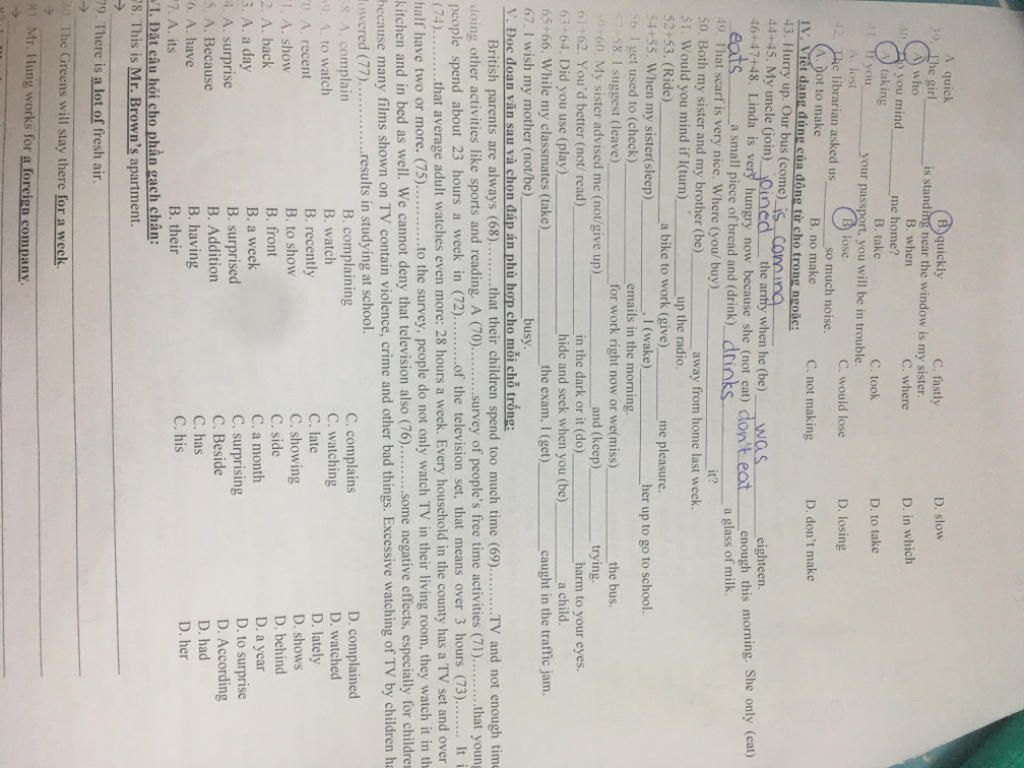 39. A quick B. quickly C. fastly D. slow
The girl is standing near the window is my sister.
40. A. who B. when C. where D. in which
you mind me home?
A. taking B. take C. took D. to take
41. If you your passport, you will be in trouble.
A. lost B. lose C. would lose D. losing
42. The librarian asked us so much noise.
A. not to make B. no make C. not making D. don't make
IV. Viết dạng đúng của động từ cho trong ngoặc:
43. Hurry up. Our bus (come) is coming
44-45. My uncle (join) joined the army when he (be) was eighteen.
46+47+48. Linda is very hungry now because she (not eat) don't eat enough this morning. She only (eat)
eats a small piece of bread and (drink) drinks a glass of milk.
49. That scarf is very nice. Where (you/ buy) it?
50. Both my sister and my brother (be) away from home last week.
51. Would you mind if I(turn) up the radio.
52+53. (Ride) a bike to work (give) me pleasure.
54+55. When my sister(sleep) , I (wake) her up to go to school.
56. I get used to (check) emails in the morning.
57-58. I suggest (leave) for work right now or we(miss) the bus.
59+60. My sister advised me (not/give up) and (keep) trying.
61+62. You'd better (not/ read) in the dark or it (do) harm to your eyes.
63+64. Did you use (play) hide and seek when you (be) a child.
65+66. While my classmates (take) the exam, I (get) caught in the traffic jam.
67. I wish my mother (not/be) busy.
V. Đọc đoạn văn sau và chọn đáp án phù hợp cho mỗi chỗ trống:
British parents are always (68)...........that their children spend too much time (69)..........TV and not enough time
doing other activities like sports and reading. A (70)..........survey of people's free time activities (71)..........that young
people spend about 23 hours a week in (72)..........of the television set, that means over 3 hours (73)........ It i
(74)..........that average adult watches even more: 28 hours a week. Every household in the county has a TV set and over
half have two or more. (75)..........to the survey, people do not only watch TV in their living room, they watch it in th
kitchen and in bed as well. We cannot deny that television also (76)..........some negative effects, especially for childre
because many films shown on TV contain violence, crime and other bad things. Excessive watching of TV by children ha
lowered (77)...........results in studying at school.
68. A. complain B. complaining C. complains D. complained
69. A. to watch B. watch C. watching D. watched
70. A. recent B. recently C. late D. lately
71. A. show B. to show C. showing D. shows
72. A. back B. front C. side D. behind
73. A. a day B. a week C. a month D. a year
74. A. surprise B. surprised C. surprising D. to surprise
75. A. Because B. Addition C. Beside D. According
76. A. have B. having C. has D. had
77. A. its B. their C. his D. her
VI. Đặt câu hỏi cho phần gạch chân:
78. This is Mr. Brown's apartment.
→
79. There is a lot of fresh air.
→
80. The Greens will stay there for a week.
→
81. Mr. Hung works for a foreign company.
→